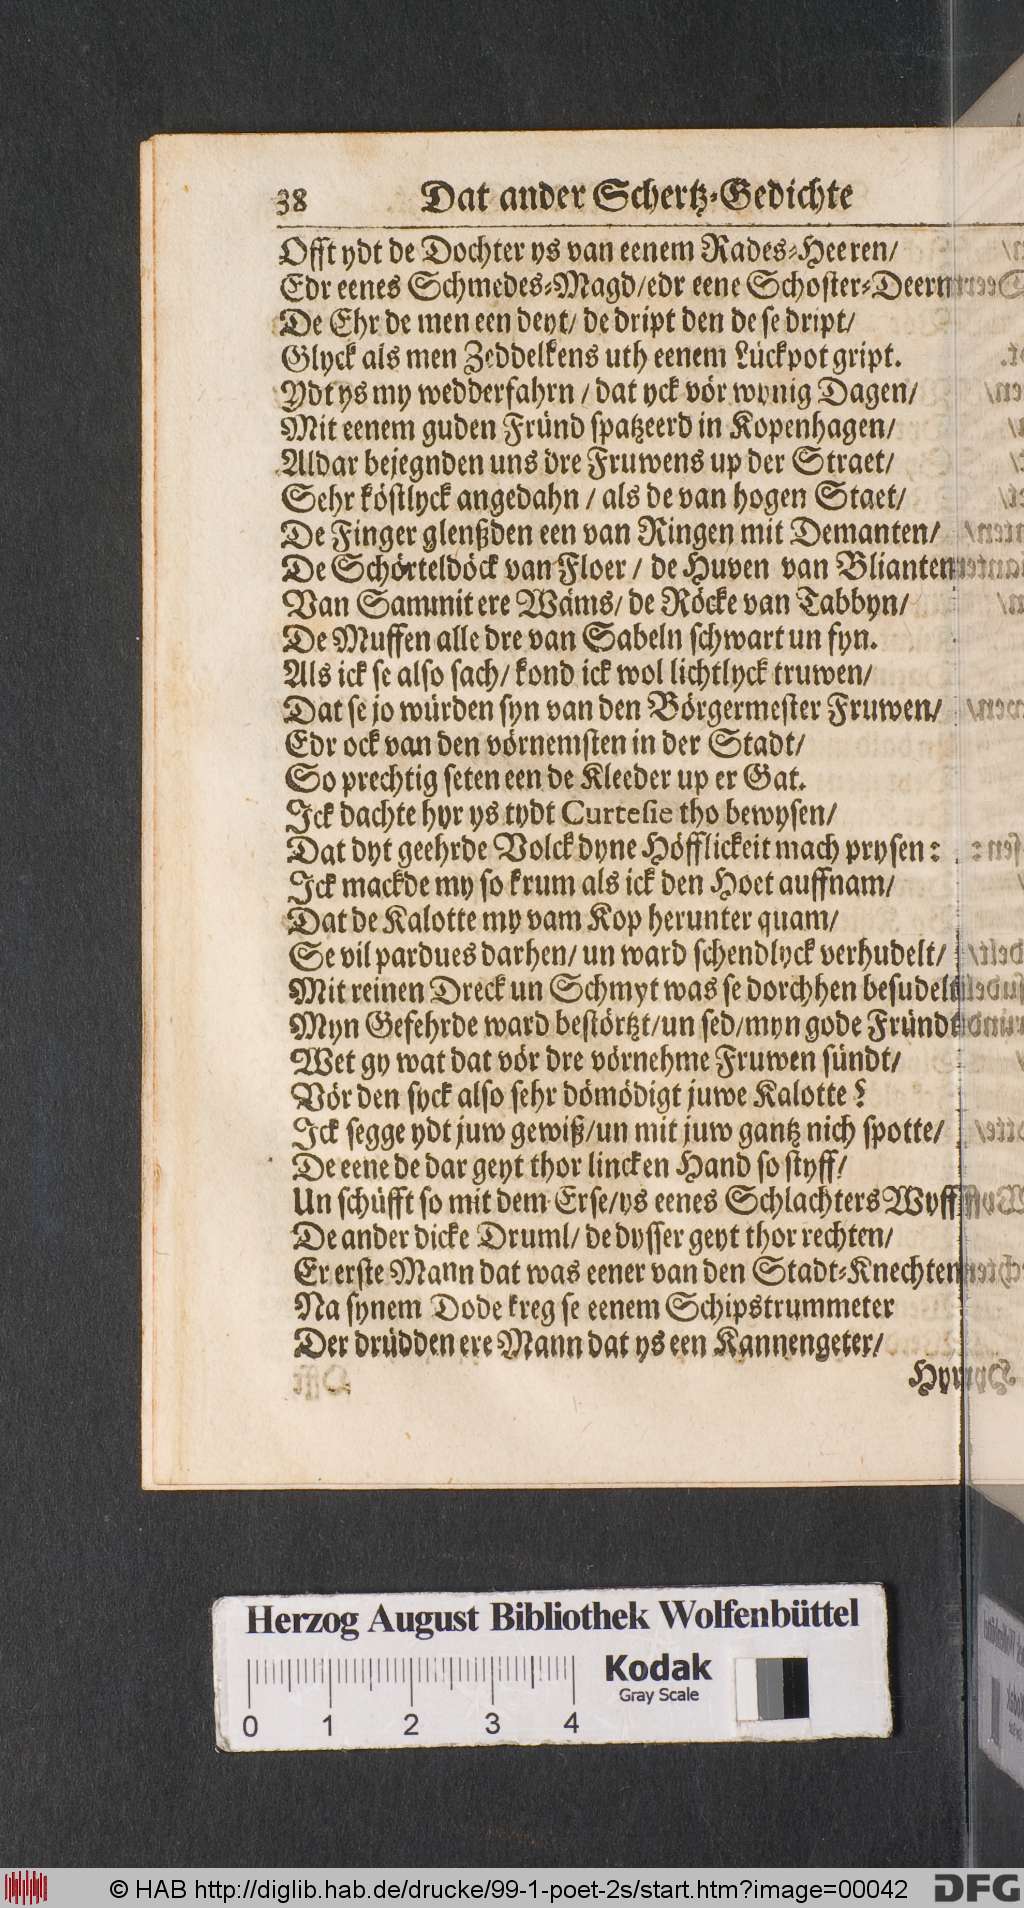 38 Dat ander Schertz-Gedichte
Offt ydt de Dochter ys van eenem Rades-Heeren/
Edr eenes Schmedes-Magd/edr eene Schoster-Deern
De Ehr de men een deyt/ de dript den de se dript/
Glyck als men Zeddelkens uth eenem Lückpot gript.
Ydt ys my wedderfahrn / dat yck vör wynig Dagen/
Mit eenem guden Fründ spatzeerd in Kopenhagen/
Aldar bejegnden uns dre Fruwens up der Straet/
Sehr köstlyck angedahn / als de van hogen Staet/
De Finger glenßden een van Ringen mit Demanten/
De Schörteldöck van Floer / de Huven van Blianten
Van Sammit ere Wäms/ de Röcke van Tabbyn/
De Muffen alle dre van Sabeln schwart un fyn.
Als ick se also sach/ kond ick wol lichtlyck truwen/
Dat se jo würden syn van den Börgermester Fruwen/
Edr ock van den vörnemsten in der Stadt/
So prechtig seten een de Kleeder up er Gat.
Ick dachte hyr ys tydt Curtesie tho bewysen/
Dat dyt geehrde Volck dyne Höfflickeit mach prysen:
Ick mackde my so krum als ick den Hoet auffnam/
Dat de Kalotte my vam Kop herunter quam/
Se vil pardues darhen/ un ward schendlyck verhudelt/
Mit reinen Dreck un Schmyt was se dorchhen besudelt
Myn Gefehrde ward bestörtzt/un sed/myn gode Fründt
Wet gy wat dat vör dre vörnehme Fruwen sündt/
Vör den syck also sehr dömödigt juwe Kalotte?
Ick segge ydt juw gewiß/un mit juw gantz nich spotte/
De eene de dar geyt thor lincken Hand so styff/
Un schüfft so mit dem Erse/ys eenes Schlachters Wyff
De ander dicke Druml/ de dysser geyt thor rechten/
Er erste Mann dat was eener van den Stadt-Knechten
Na synem Dode kreg se eenem Schipstrummeter
Der drüdden ere Mann dat ys een Kannengeter/
Hyr
Herzog August Bibliothek Wolfenbüttel
Kodak
Gray Scale
0 1 2 3 4
© HAB http://diglib.hab.de/drucke/99-1-poet-2s/start.htm?image=00042
DFG